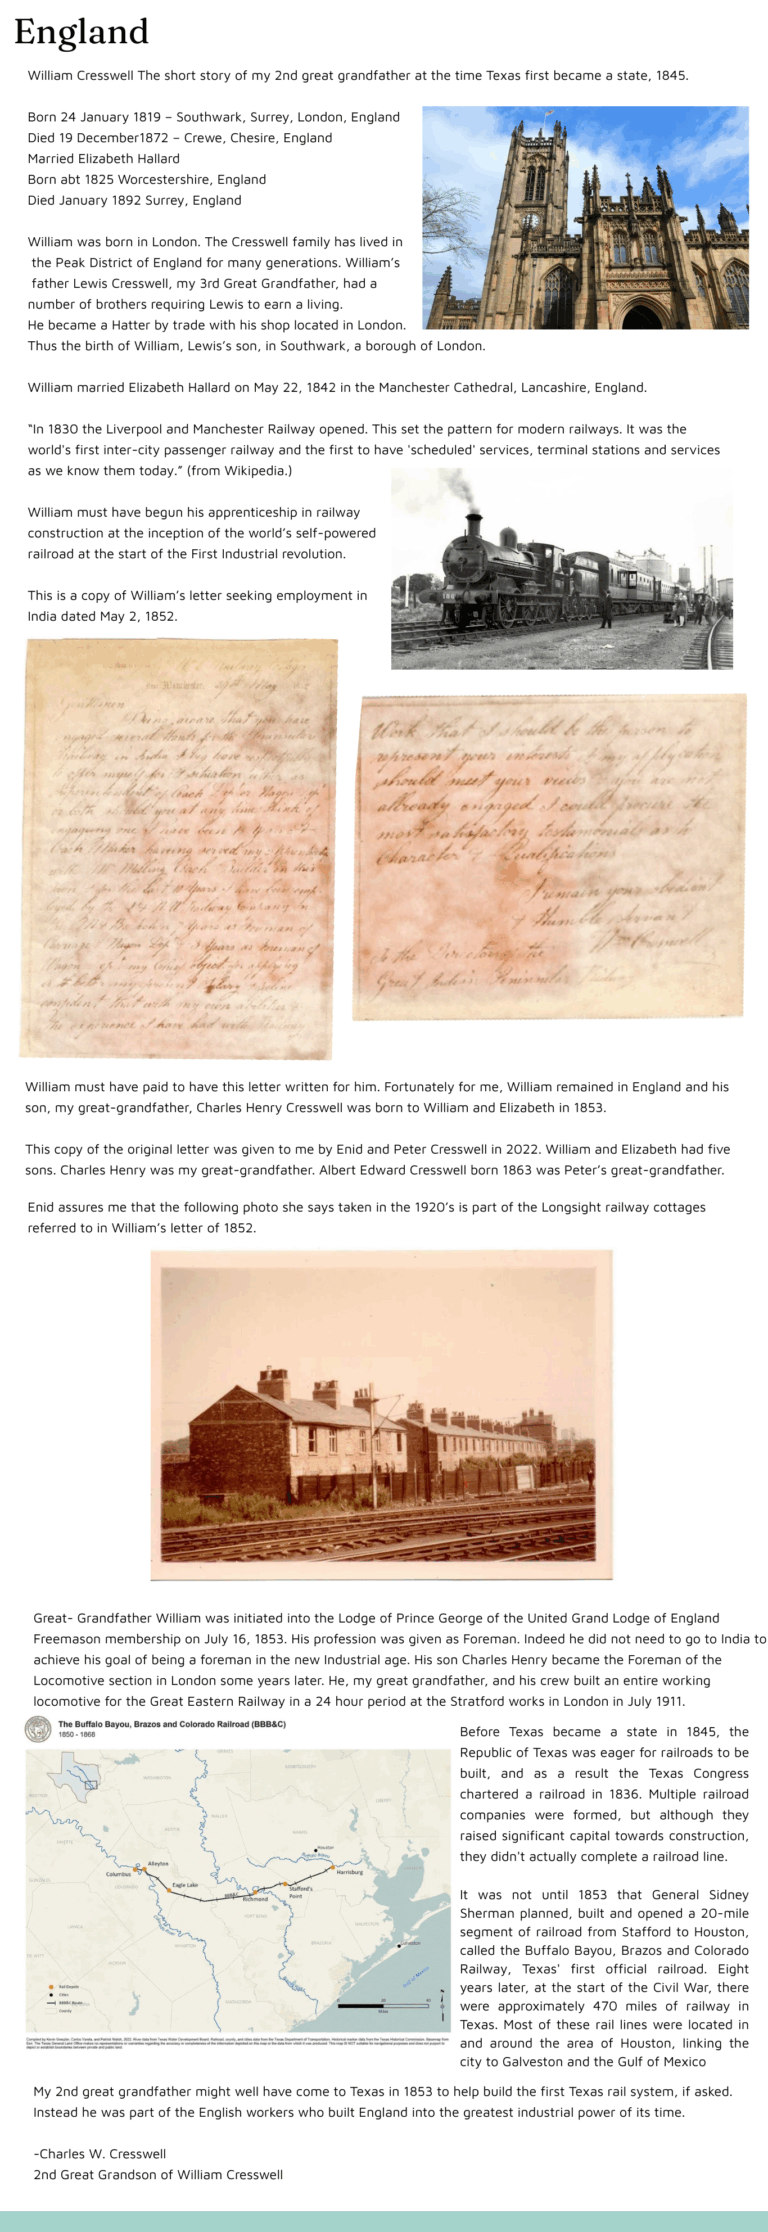 England
William Cresswell The short story of my 2nd great grandfather at the time Texas first became a state, 1845.
Born 24 January 1819 – Southwark, Surrey, London, England
Died 19 December1872 – Crewe, Chesire, England
Married Elizabeth Hallard
Born abt 1825 Worcestershire, England
Died January 1892 Surrey, England
William was born in London. The Cresswell family has lived in
the Peak District of England for many generations. William's
father Lewis Cresswell, my 3rd Great Grandfather, had a
number of brothers requiring Lewis to earn a living.
He became a Hatter by trade with his shop located in London.
Thus the birth of William, Lewis's son, in Southwark, a borough of London.
William married Elizabeth Hallard on May 22, 1842 in the Manchester Cathedral, Lancashire, England.
"In 1830 the Liverpool and Manchester Railway opened. This set the pattern for modern railways. It was the
world's first inter-city passenger railway and the first to have 'scheduled' services, terminal stations and services
as we know them today." (from Wikipedia.)
William must have begun his apprenticeship in railway
construction at the inception of the world's self-powered
railroad at the start of the First Industrial revolution.
This is a copy of William's letter seeking employment in
India dated May 2, 1852.
Gentlemen
Being aware that you have
Work that I should be the person to
represent your interests if my application
should meet your views & you are not
allready engaged I could procure the
most satisfactory testimonials as to
Character & Qualifications
I remain your obedient
& Humble Servant
Wm Cresswell
To the Directors of the
Great Indian Peninsular Railway
William must have paid to have this letter written for him. Fortunately for me, William remained in England and his
son, my great-grandfather, Charles Henry Cresswell was born to William and Elizabeth in 1853.
This copy of the original letter was given to me by Enid and Peter Cresswell in 2022. William and Elizabeth had five
sons. Charles Henry was my great-grandfather. Albert Edward Cresswell born 1863 was Peter's great-grandfather.
Enid assures me that the following photo she says taken in the 1920's is part of the Longsight railway cottages
referred to in William's letter of 1852.
Great- Grandfather William was initiated into the Lodge of Prince George of the United Grand Lodge of England
Freemason membership on July 16, 1853. His profession was given as Foreman. Indeed he did not need to go to India to
achieve his goal of being a foreman in the new Industrial age. His son Charles Henry became the Foreman of the
Locomotive section in London some years later. He, my great grandfather, and his crew built an entire working
locomotive for the Great Eastern Railway in a 24 hour period at the Stratford works in London in July 1911.
The Buffalo Bayou, Brazos and Colorado Railroad (BBB&C)
1850 - 1868
Houston
Harrisburg
Alleyton
Columbus
Eagle Lake
Stafford's
Point
BBB&C
Richmond
Galveston
Gulf of Mexico
Miles
Before Texas became a state in 1845, the
Republic of Texas was eager for railroads to be
built, and as a result the Texas Congress
chartered a railroad in 1836. Multiple railroad
companies were formed, but although they
raised significant capital towards construction,
they didn't actually complete a railroad line.
It was not until 1853 that General Sidney
Sherman planned, built and opened a 20-mile
segment of railroad from Stafford to Houston,
called the Buffalo Bayou, Brazos and Colorado
Railway, Texas' first official railroad. Eight
years later, at the start of the Civil War, there
were approximately 470 miles of railway in
Texas. Most of these rail lines were located in
and around the area of Houston, linking the
city to Galveston and the Gulf of Mexico
My 2nd great grandfather might well have come to Texas in 1853 to help build the first Texas rail system, if asked.
Instead he was part of the English workers who built England into the greatest industrial power of its time.
-Charles W. Cresswell
2nd Great Grandson of William Cresswell